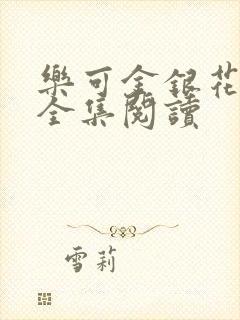 樂可金銀花
全集閱讀
雪莉